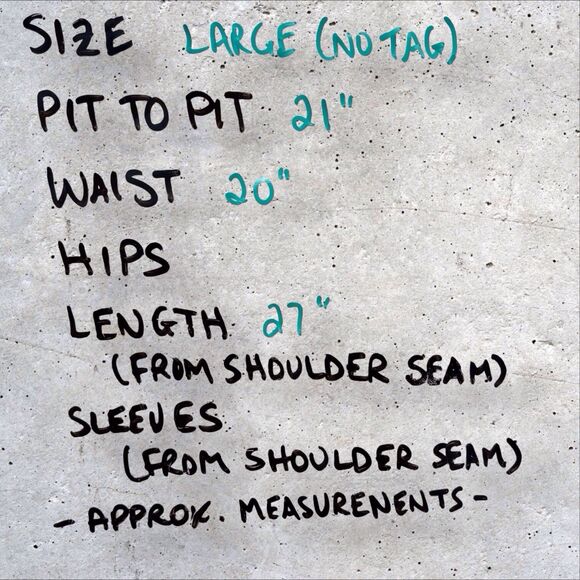 SIZE LARGE (NO TAG)
PIT TO PIT 21"
WAIST 20"
HIPS
LENGTH 27"
(FROM SHOULDER SEAM)
SLEEVES
(FROM SHOULDER SEAM)
- APPROX. MEASURENENTS -